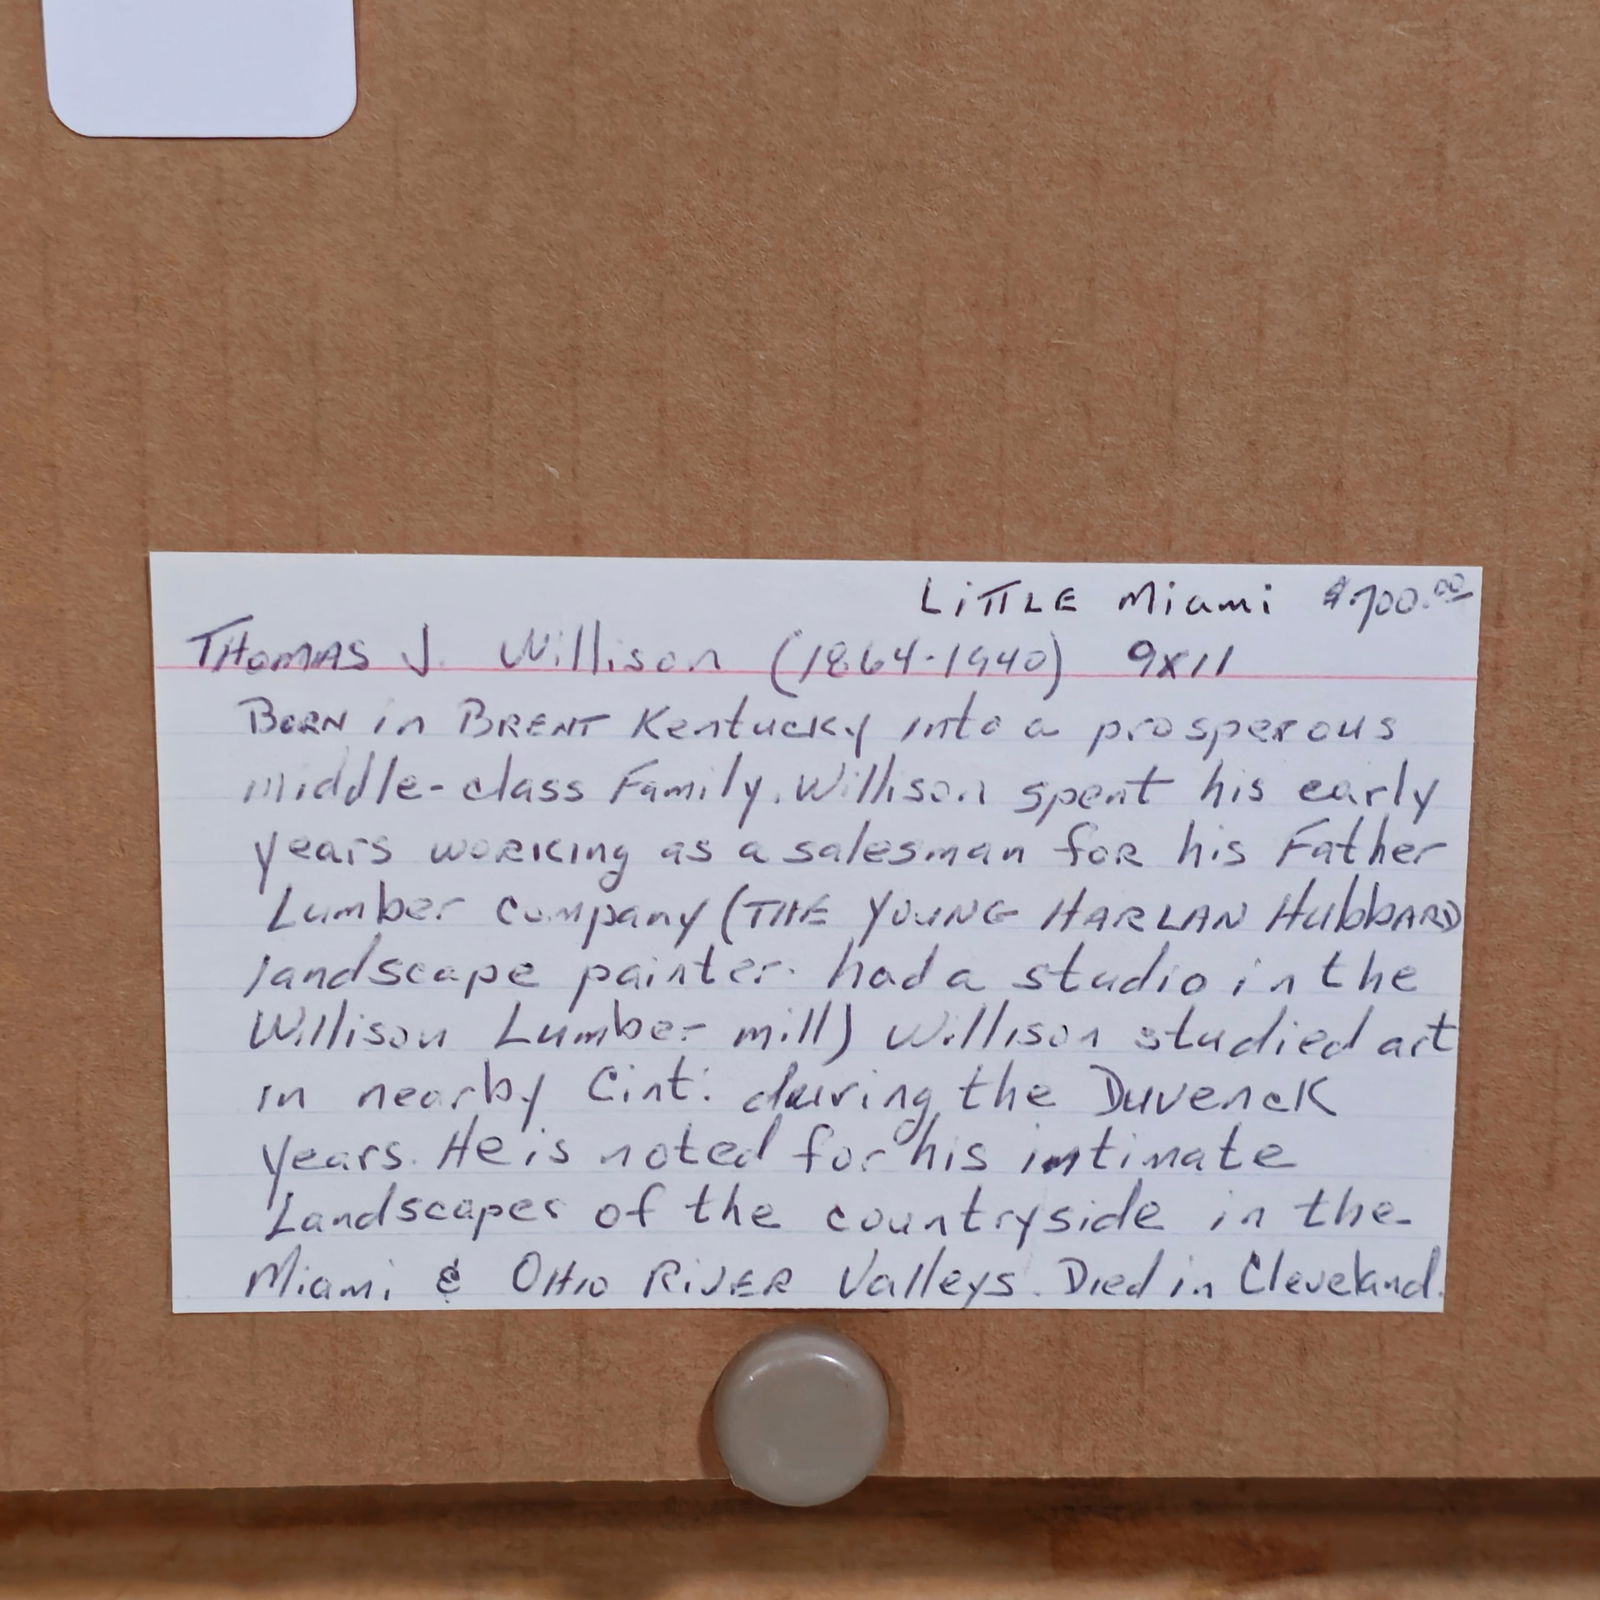 LiTTLE Miami $700.00
THOMAS J. Willison (1864-1940) 9x11
BORN in BRENT Kentucky into a prosperous
middle-class Family. Willison spent his early
years working as a salesman for his Father
Lumber company (THE YOUNG HARLAN HubbARD
landscape painter. had a studio in the
Willison Lumber mill) Willison studied art
in nearby Cint. during the Duvenck
years. He is noted for his intimate
Landscapes of the countryside in the
Miami & OHIO RIVER Valleys. Died in Cleveland.